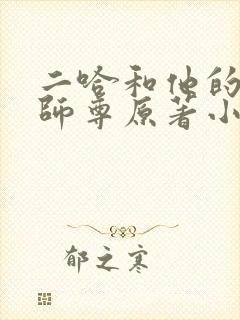 二哈和他的
師尊原著小
郁之寒